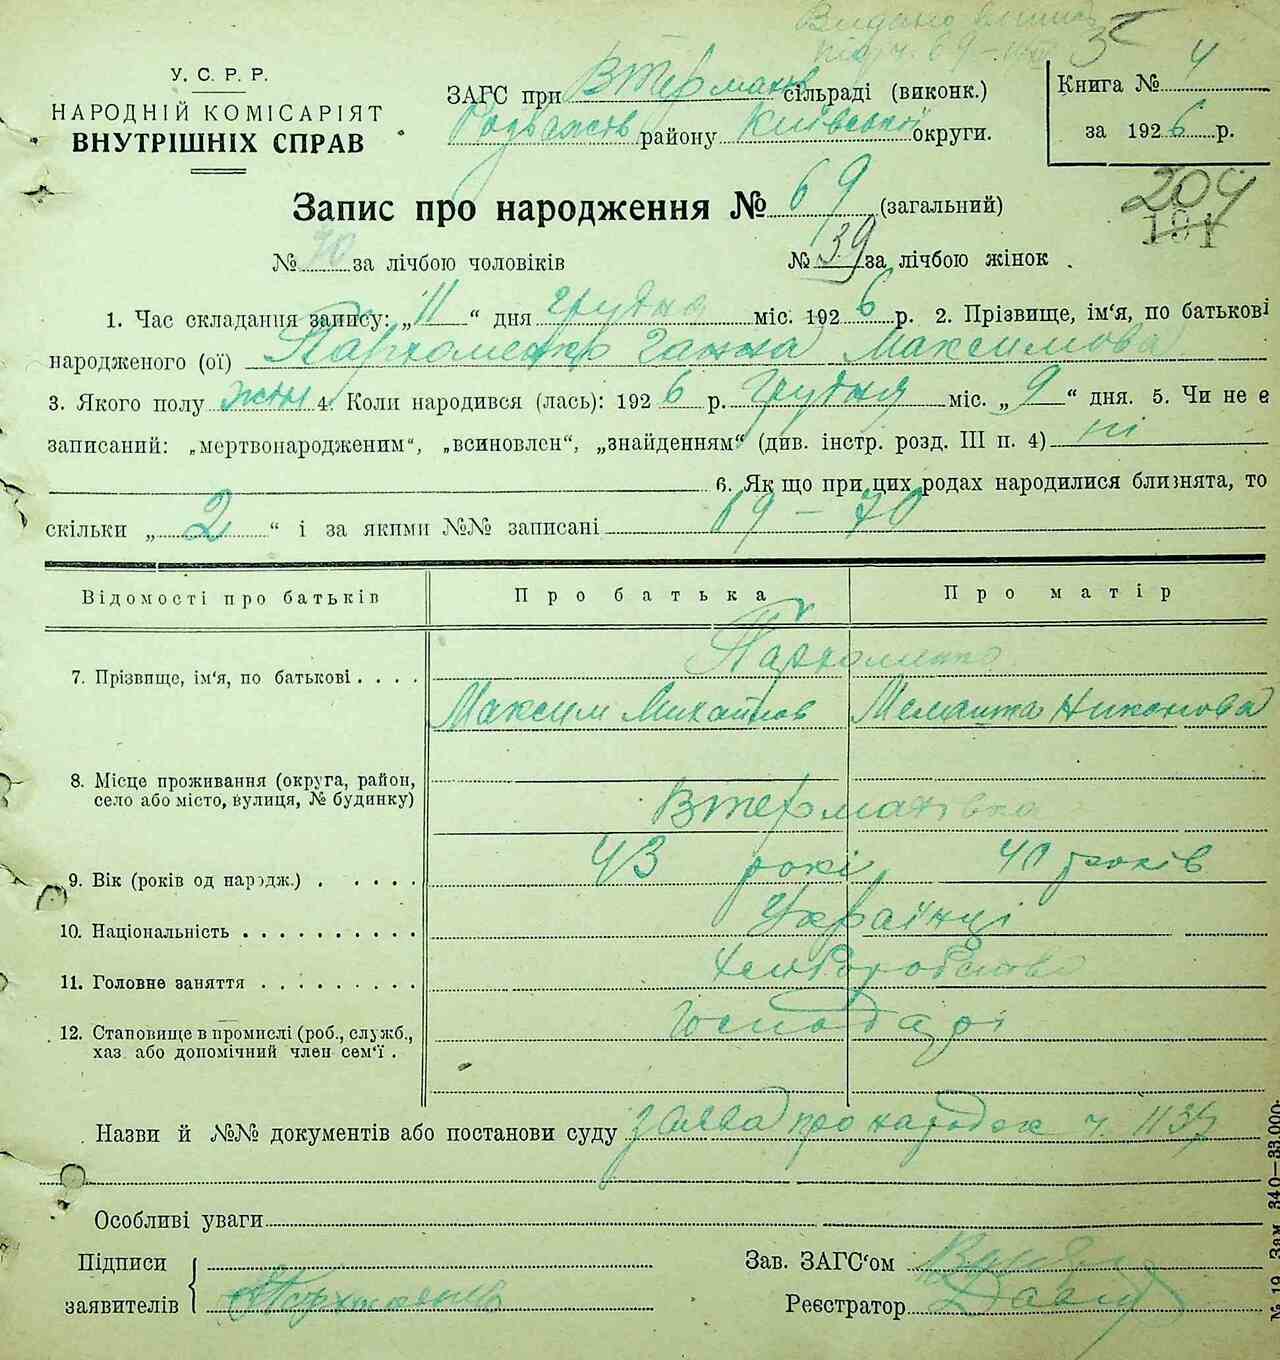 Видано
У. С. Р. Р.
НАРОДНІЙ КОМІСАРІЯТ
ВНУТРІШНІХ СПРАВ
ЗАГС при Втерманів сільраді (виконк.)
району Київської округи.
Книга № 4
за 1926 р.
Запис про народження № 69 (загальний)
204
191
№ 70 за лічбою чоловіків № 39 за лічбою жінок .
1. Час складання запису: „11“ дня грудня міс. 1926 р. 2. Прізвище, ім‘я, по батькові
народженого (ої) Пархоменко Ганна Максимова
3. Якого полу жін 4. Коли народився (лась): 1926 р. Грудня міс. „9“ дня. 5. Чи не є
записаний: „мертвонародженим“, „всиновлен“, „знайденням“ (див. інстр. розд. III п. 4) ні
6. Як що при цих родах народилися близнята, то
скільки „2“ і за якими №№ записані 69 – 70
Відомості про батьків Про батька Про матір
Пархоменко
7. Прізвище, ім‘я, по батькові . . . .
Максим Михайлов Меланка Никонова
8. Місце проживання (округа, район,
село або місто, вулиця, № будинку)
Втерманівка
9. Вік (років од народж.) . . . . . 43 рокі 40 років
10. Національність . . . . . . . . . . Українці
11. Головне заняття . . . . . . . . . Хліборобство
12. Становище в промислі (роб., служб.,
хаз. або допомічний член сем‘ї . Господарі
Назви й №№ документів або постанови суду заява про народж ч. 1137
Особливі уваги
Підписи
заявителів
Зав. ЗАГС‘ом
Реєстратор
№ 19 Зам. 340—33.000.